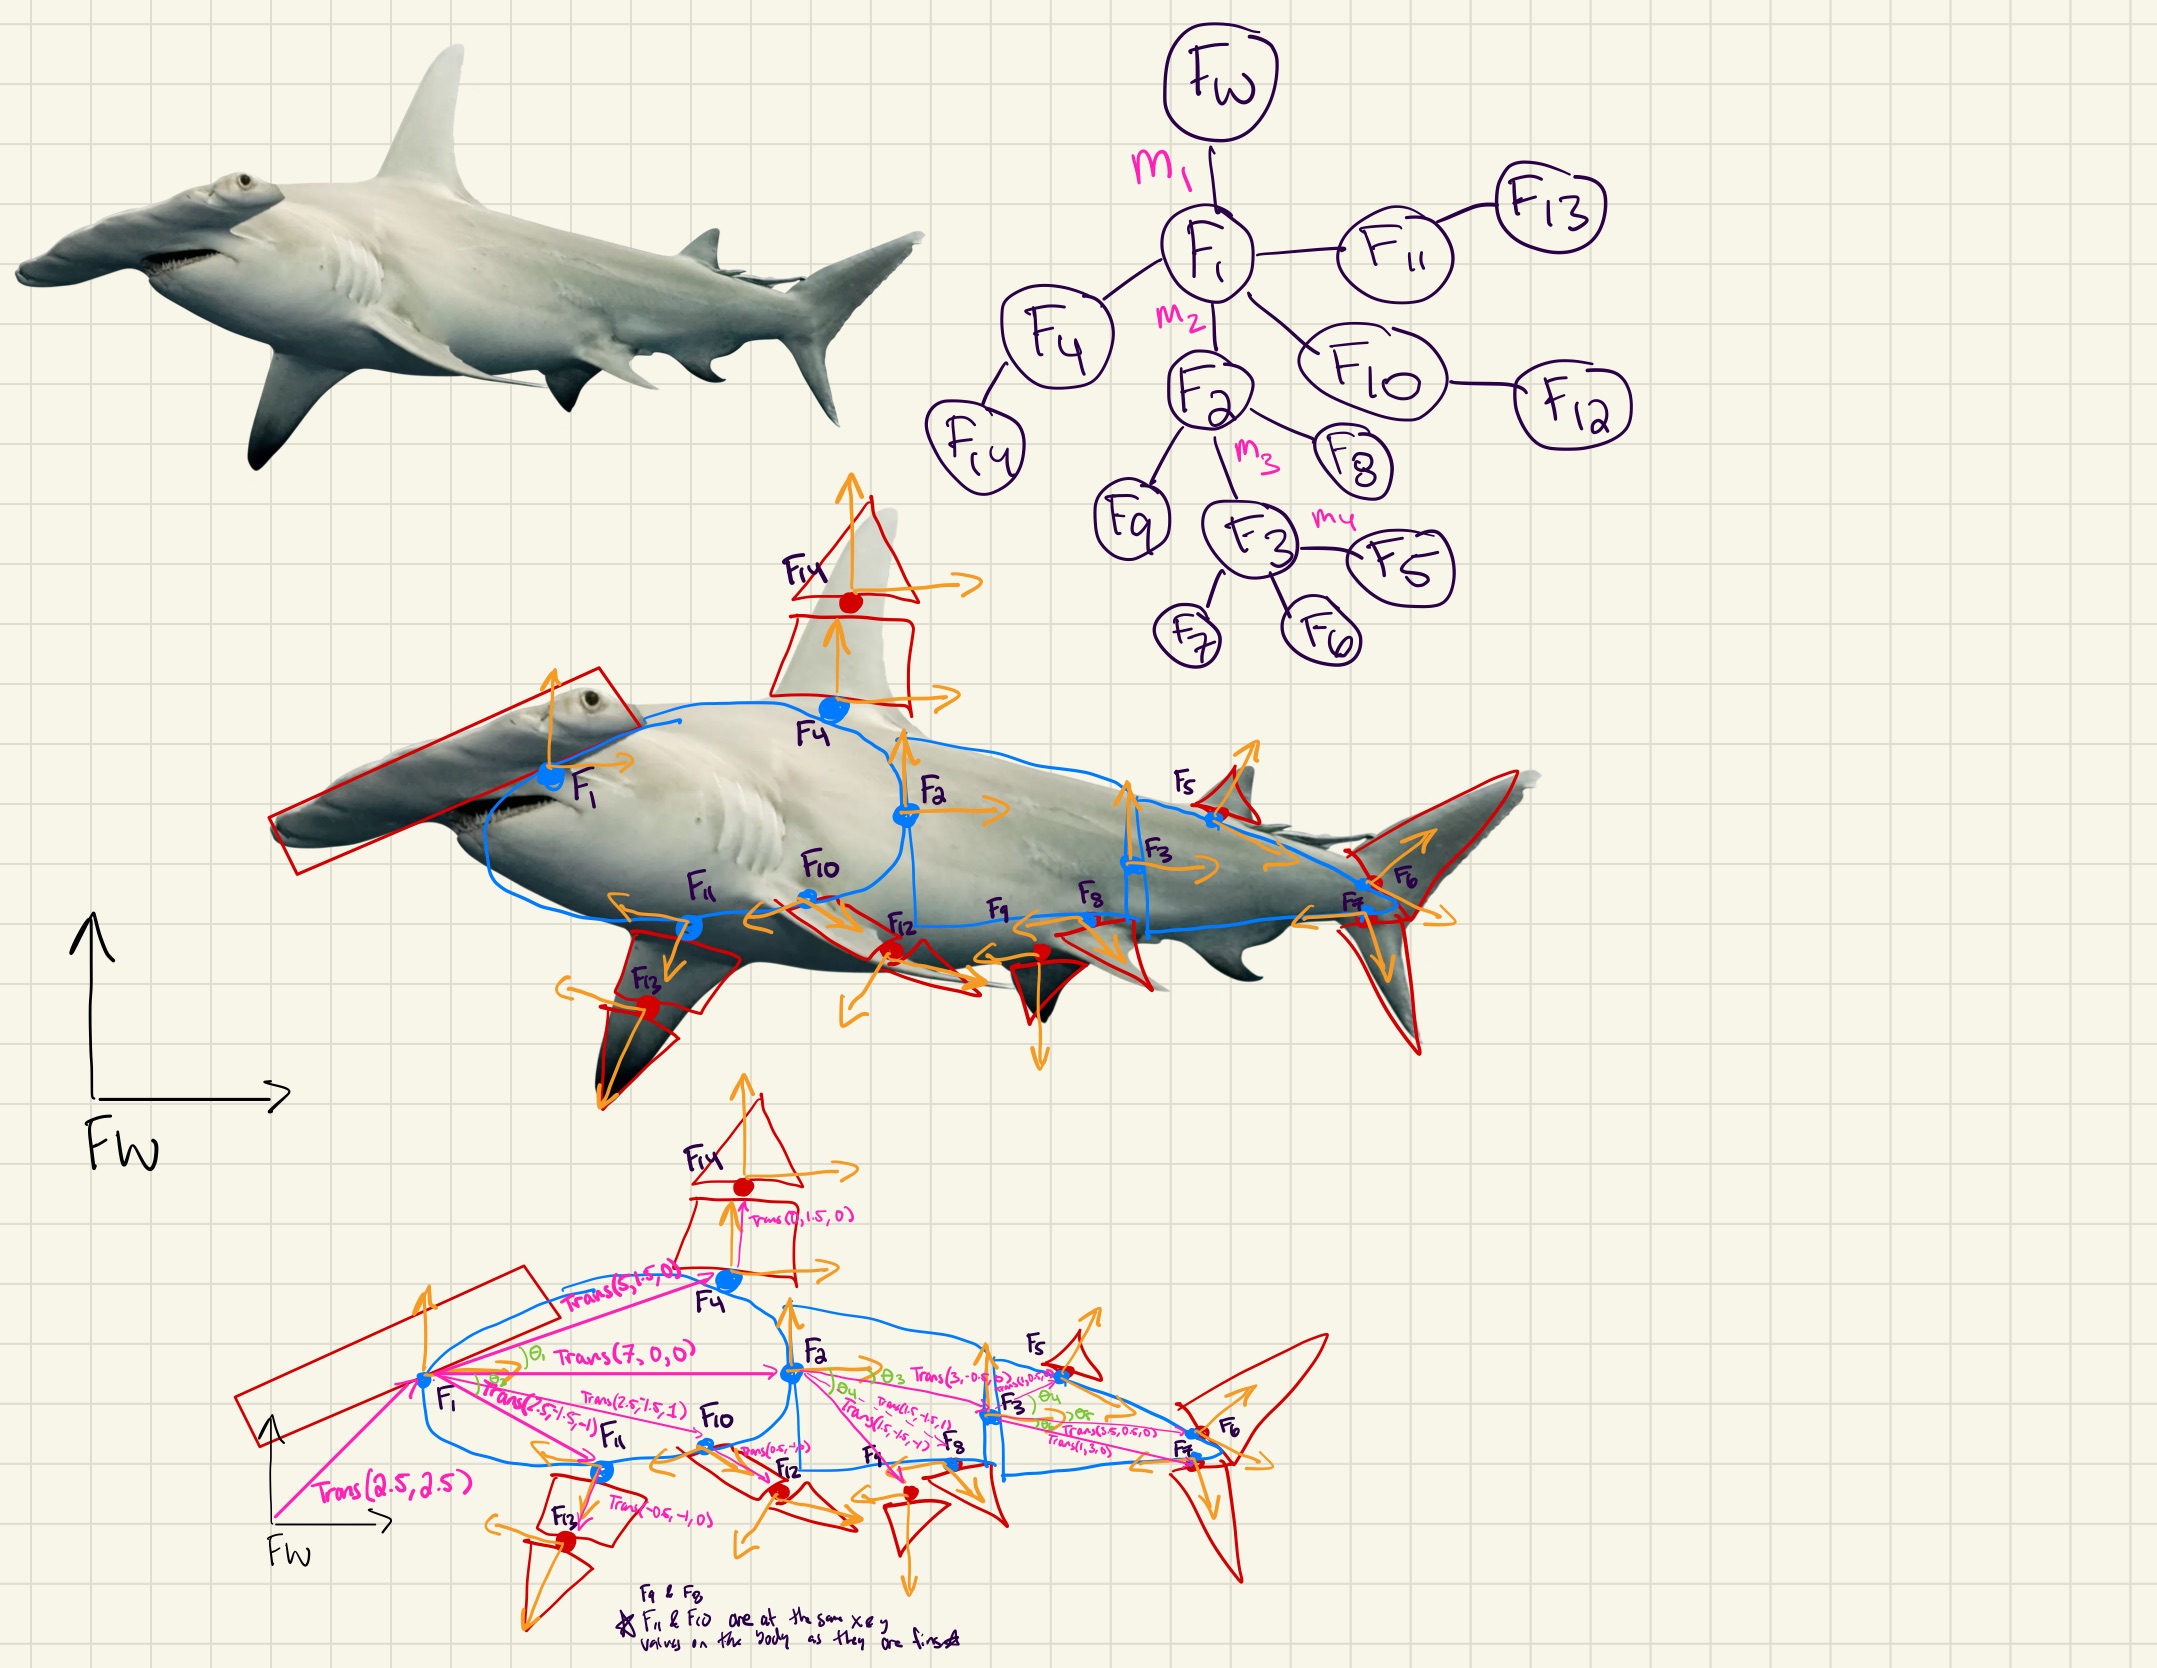 Fw
m1
F13
F1
F11
m2
F4
F10
F2
F12
F14
m3
F8
F9
F3
m4
F5
F7
F6
F14
F4
F1
F2
F5
F3
F10
F11
F6
F7
F8
F9
F12
F13
Fw
F14
Trans(0, 1.5, 0)
Trans(5, 1.5, 0)
F4
θ1
Trans(7, 0, 0)
F2
F5
θ3
θ4
F1
Trans(2.5, -1.5, 1)
Trans(2.5, -1.5, -1)
Trans(3, -0.5, 0)
F3
θ4
θ5
F10
F11
Trans(1.5, -1.5, 1)
Trans(1.5, -1.5, -1)
Trans(3.5, 0.5, 0)
Trans(1, 3, 0)
F6
F7
F8
F9
Trans(0.5, -1, 0)
F12
Trans(2.5, 2.5)
Trans(-0.5, -1, 0)
F13
Fw
F9 & F8
F11 & F10 are at the same x & y
values on the body as they are fins